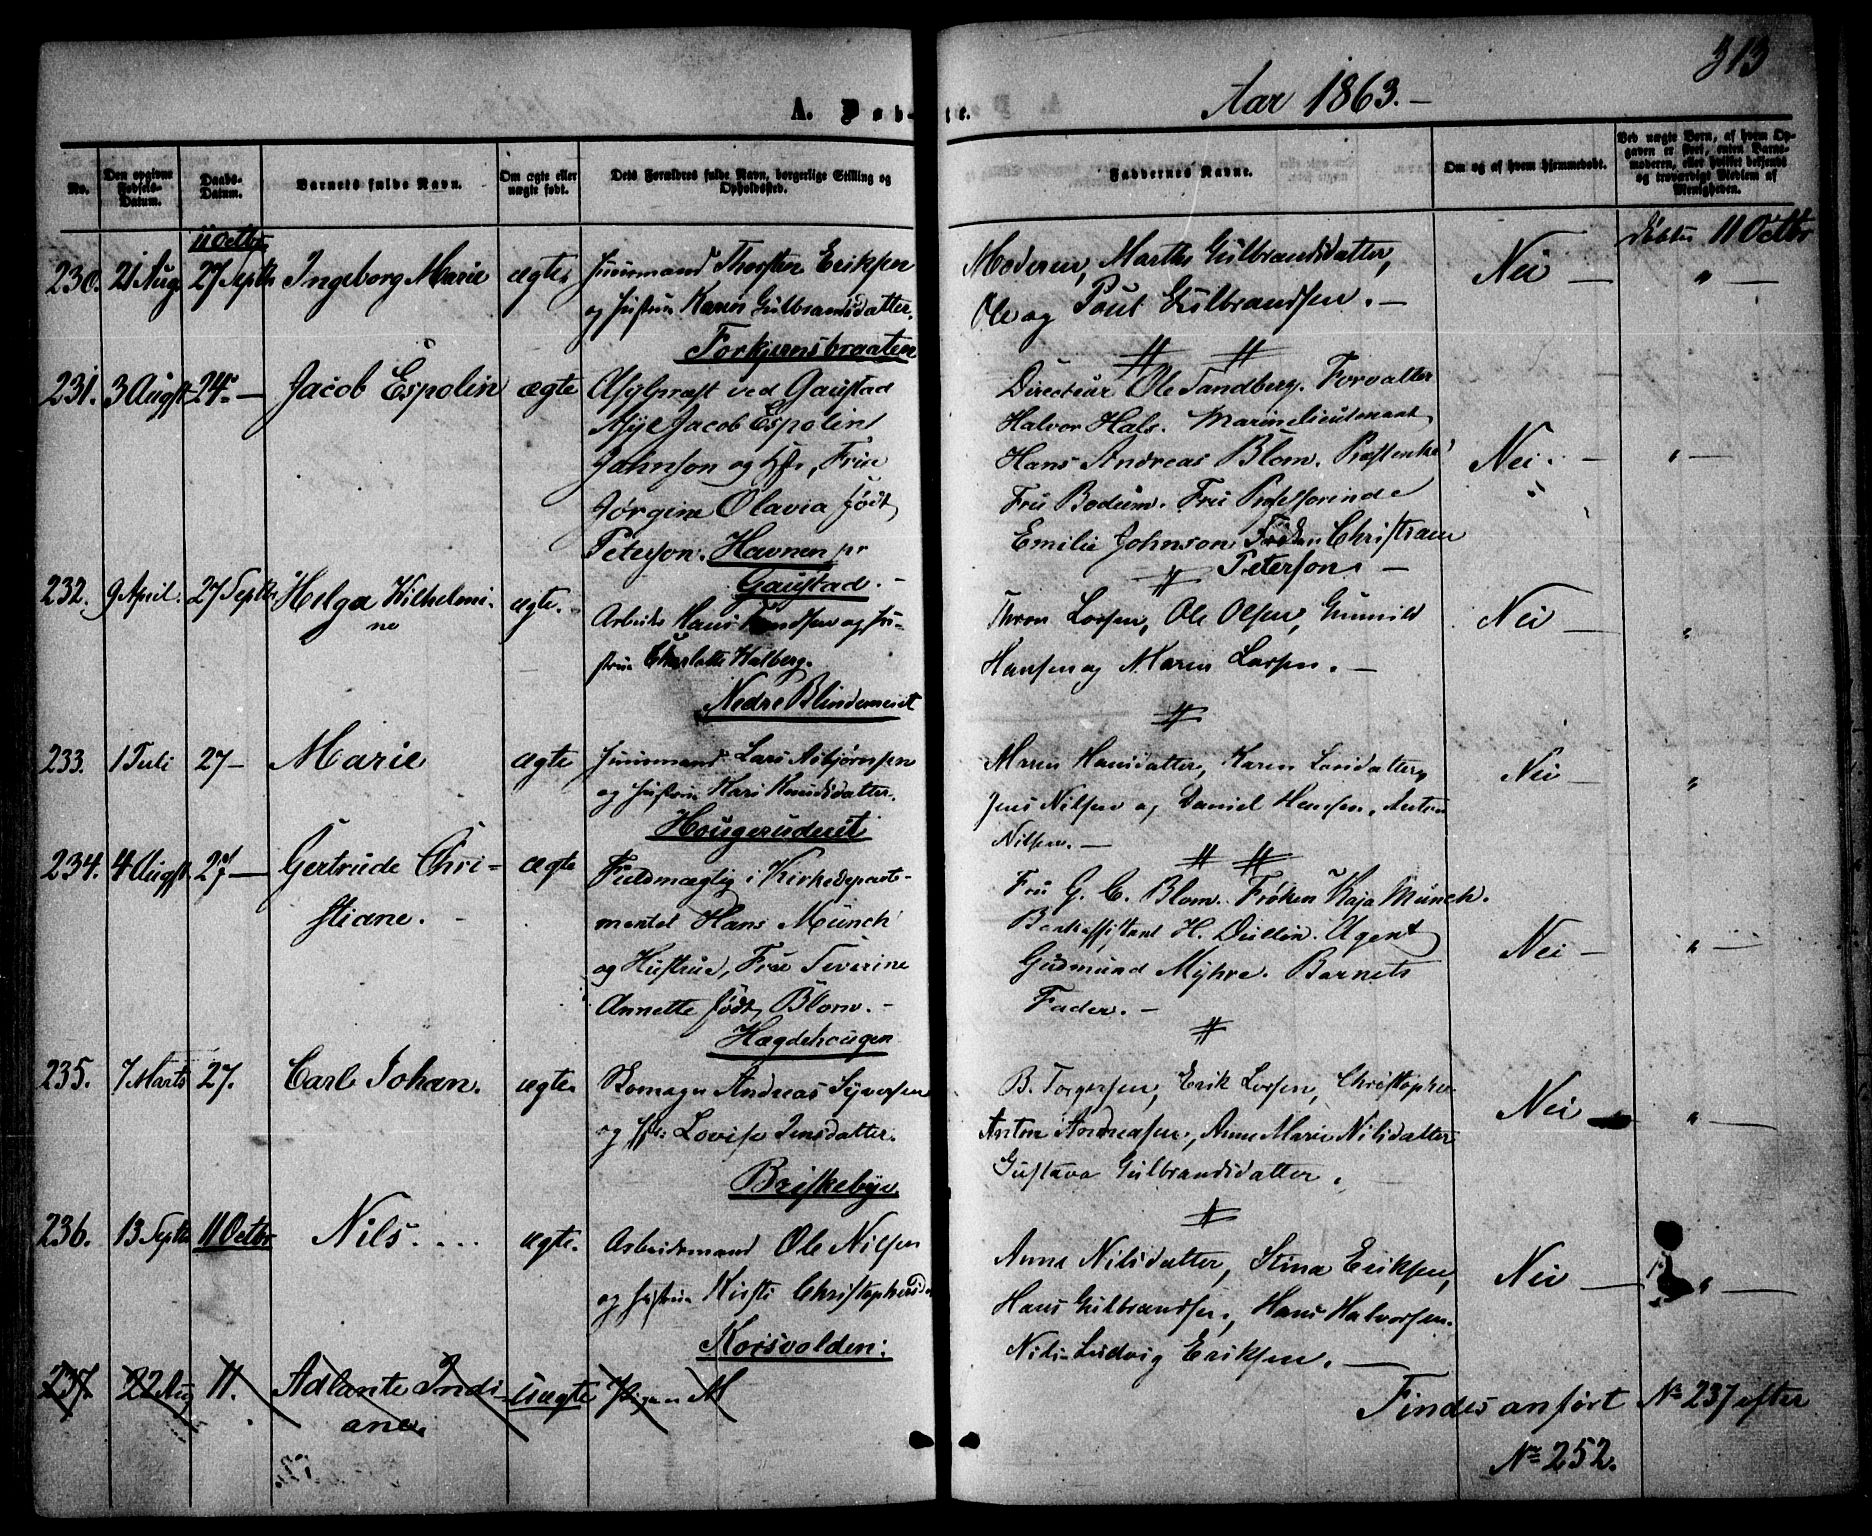 313
Aar 1863.-
A. Døb-te.
No.
Den opgivne Fødsels-Datum.
Daabs-Datum.
Barnets fulde Navn.
Om ægte eller uægte født.
Dets Forældres fulde Navn, borgerlige Stilling og Opholdssted.
Faddernes Navne.
Om og af hvem hjemmedøbt.
Ved uægte Børn, af hvem Opgaven er skeet, enten Barnemoderen, eller hvilket bekjendt og troværdigt Medlem af Menigheden.
11 Octbr
Døbte 11 Octbr
230. 21 Aug. 27 Septb Ingeborg Marie ægte Huusmand Thorsten Eriksen
og Hustru Karen Gulbrandsdatter.
Torkjernsbraaten
Moderen, Marthe Gulbrandsdatter,
Ole og Poul Gulbrandsen. -
Nei — " —
231. 3 Augst 24. — Jacob Espolin ægte Asylpræst ved Gaustad
Asyl Jacob Espolin
Johnson og Hst, Frue
Jørgine Olavia født
Peterson. Havnen pr
Gaustad. -
Directeur Ole Sandberg. Forvalter
Halvor Hals. Marinelieutenant
Hans Andreas Blom.
Fru Bodum. Fru Professorinde
Emilie Johnson. Frøken Christiane
Peterson. -
Nei. — " —
232. 9 April. 27 Septb Helga Wilhelmi-
ne
ægte. Arbeids Hans Knudsen og Hu-
stru Charlotte Walberg.
Nedre Blindemeiet
Thron Larsen, Ole Olsen, Gunnild
Hansen og Maren Larsen. -
Nei — "
233. 1 Juli 27 - Marie ægte Huusmand Lars Asbjørnsen
og Hustru Kari Knudsdatter.
Hougerudeiet
Maren Hansdatter, Karen Larsdatter,
Jens Nilsen og Daniel Hansen, Anton
Nilsen. -
Nei — "
234. 4 Augst. 27 — Gertrude Chri-
stiane.
ægte Fuldmægtig i Kirkedeparte-
mentet Hans Münch
og Hustrue, Frue Severine
Annette født, Blom. -
Hægdehougen
Fru G. C. Blom. Frøken Kaja Münch.
Bankassistant H. Dullin. Agent
Gudmund Myhre. Barnets
Fader. -
Nei — " —
235. 7 Marts 27. Carl Johan. ægte Andreas Syversen
og Hst: Lovise Jensdatter.
Briskebye
B. Torgersen, Erik Larsen, Christopher
Anton Andreasen, Anne Marie Nilsdatter
Gustava Gulbrandsdatter.
Nei — " —
236. 13 Septb 11 Octbr Nils. ... ægte. Arbeidsmand Ole Nilsen
og Hustru Kirsti Christophersd.
Korsvolden.
Anne Nilsdatter, Stina Eriksen,
Hans Gulbrandsen, Hans Halvorsen.
Nils Ludvig Eriksen. —
Nei — " —
237. 22 Aug 11. Adlante Indi-
ane.
uægte Pigen M
Findes anført No 237 efter
No 252.